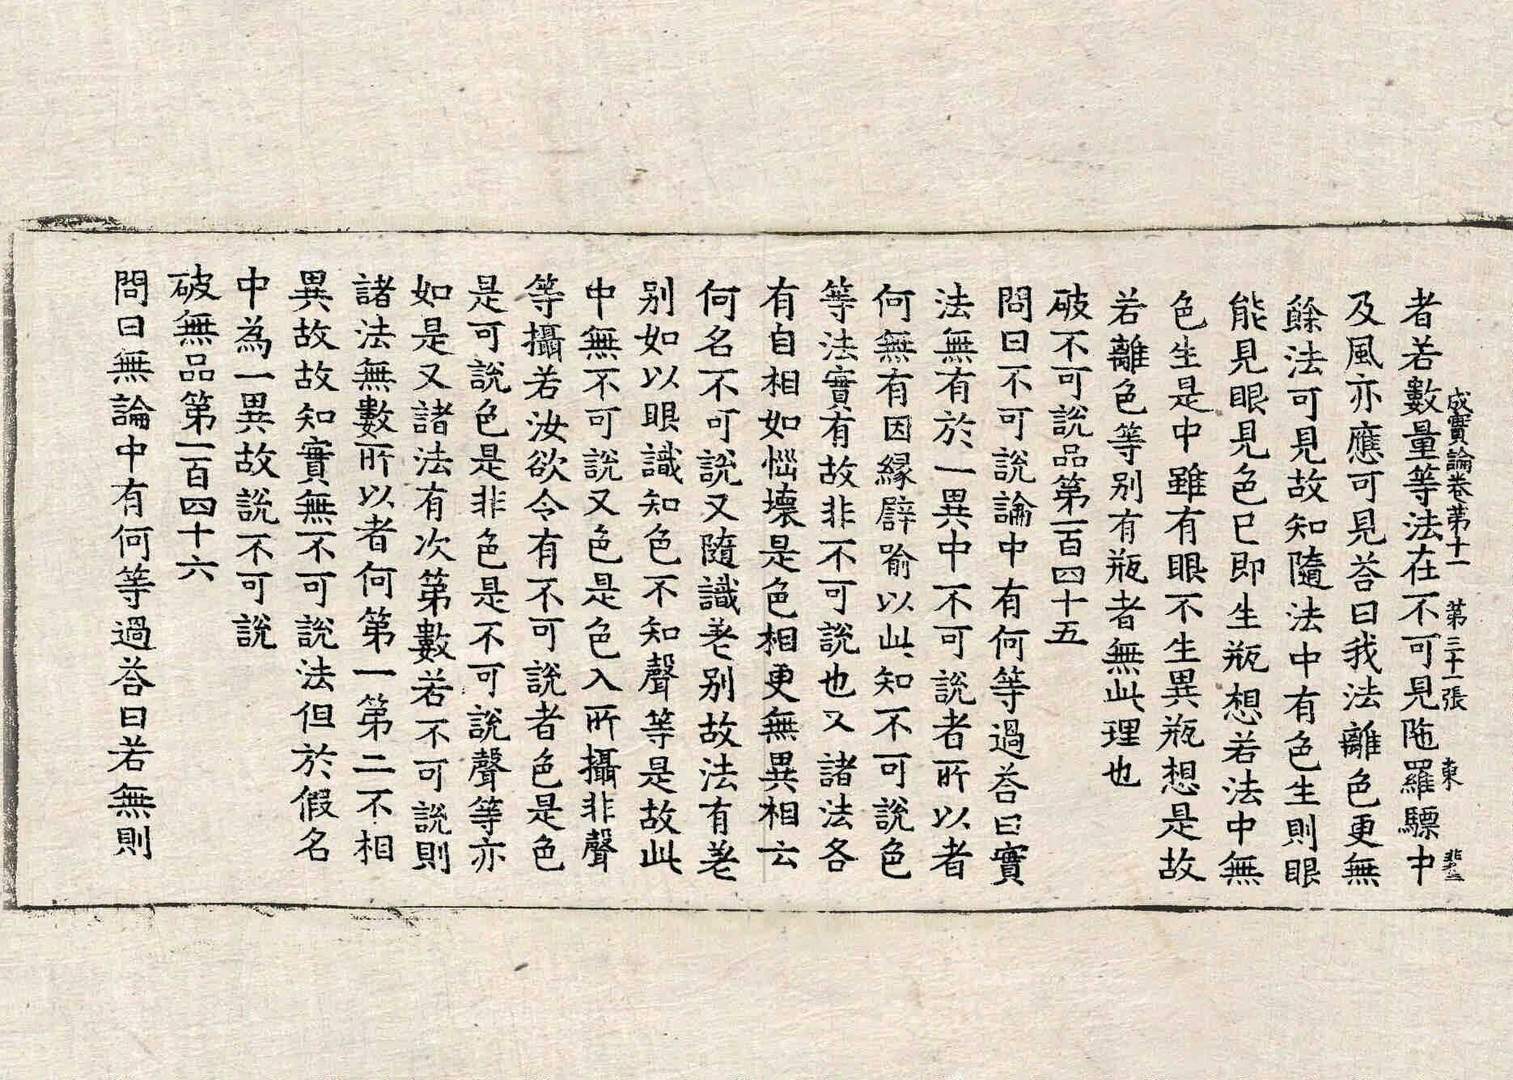 成實論卷第十一　第三十一張　東
者若數量等法在不可見陁羅驃中
及風亦應可見荅曰我法離色更無
餘法可見故知隨法中有色生則眼
能見眼見色已即生瓶想若法中無
色生是中雖有眼不生異瓶想是故
若離色等別有瓶者無此理也
破不可說品第一百四十五
問曰不可說論中有何等過荅曰實
法無有於一異中不可說者所以者
何無有因緣辟喻以此知不可說色
等法實有故非不可說也又諸法各
有自相如惱壞是色相更無異相云
何名不可說又隨識差別故法有差
別如以眼識知色不知聲等是故此
中無不可說又色是色入所攝非聲
等攝若汝欲令有不可說者色是色
是可說色是非色是不可說聲等亦
如是又諸法有次第數若不可說則
諸法無數所以者何第一第二不相
異故故知實無不可說法但於假名
中為一異故說不可說
破無品第一百四十六
問曰無論中有何等過荅曰若無則